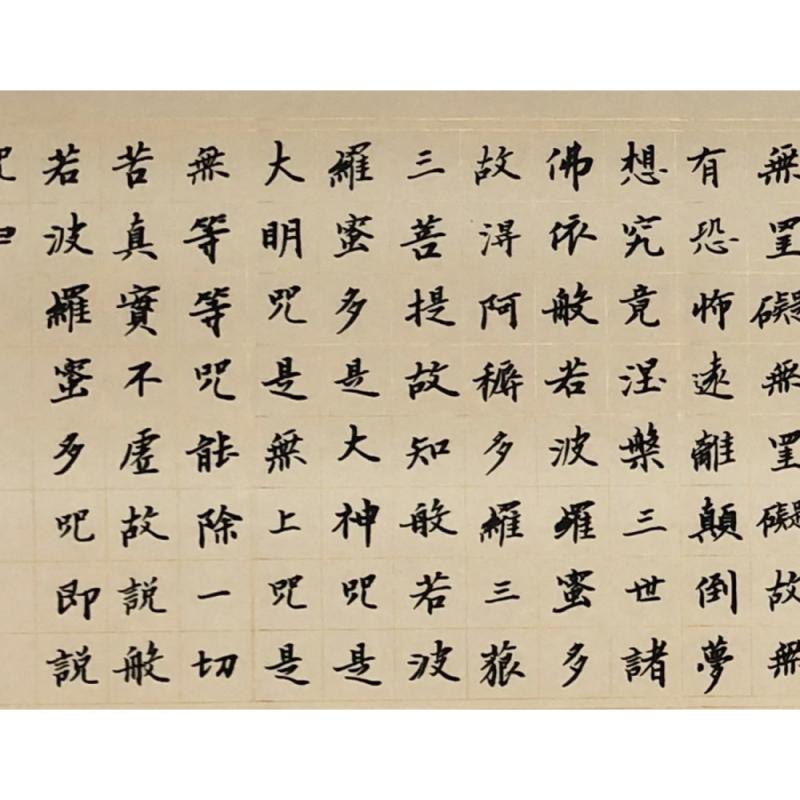 無罣礙無罣礙故無
有恐怖遠離顛倒夢
想究竟涅槃三世諸
佛依般若波羅蜜多
故得阿耨多羅三藐
三菩提故知般若波
羅蜜多是大神咒是
大明咒是無上咒是
無等等咒能除一切
苦真實不虛故說般
若波羅蜜多咒即說
咒曰